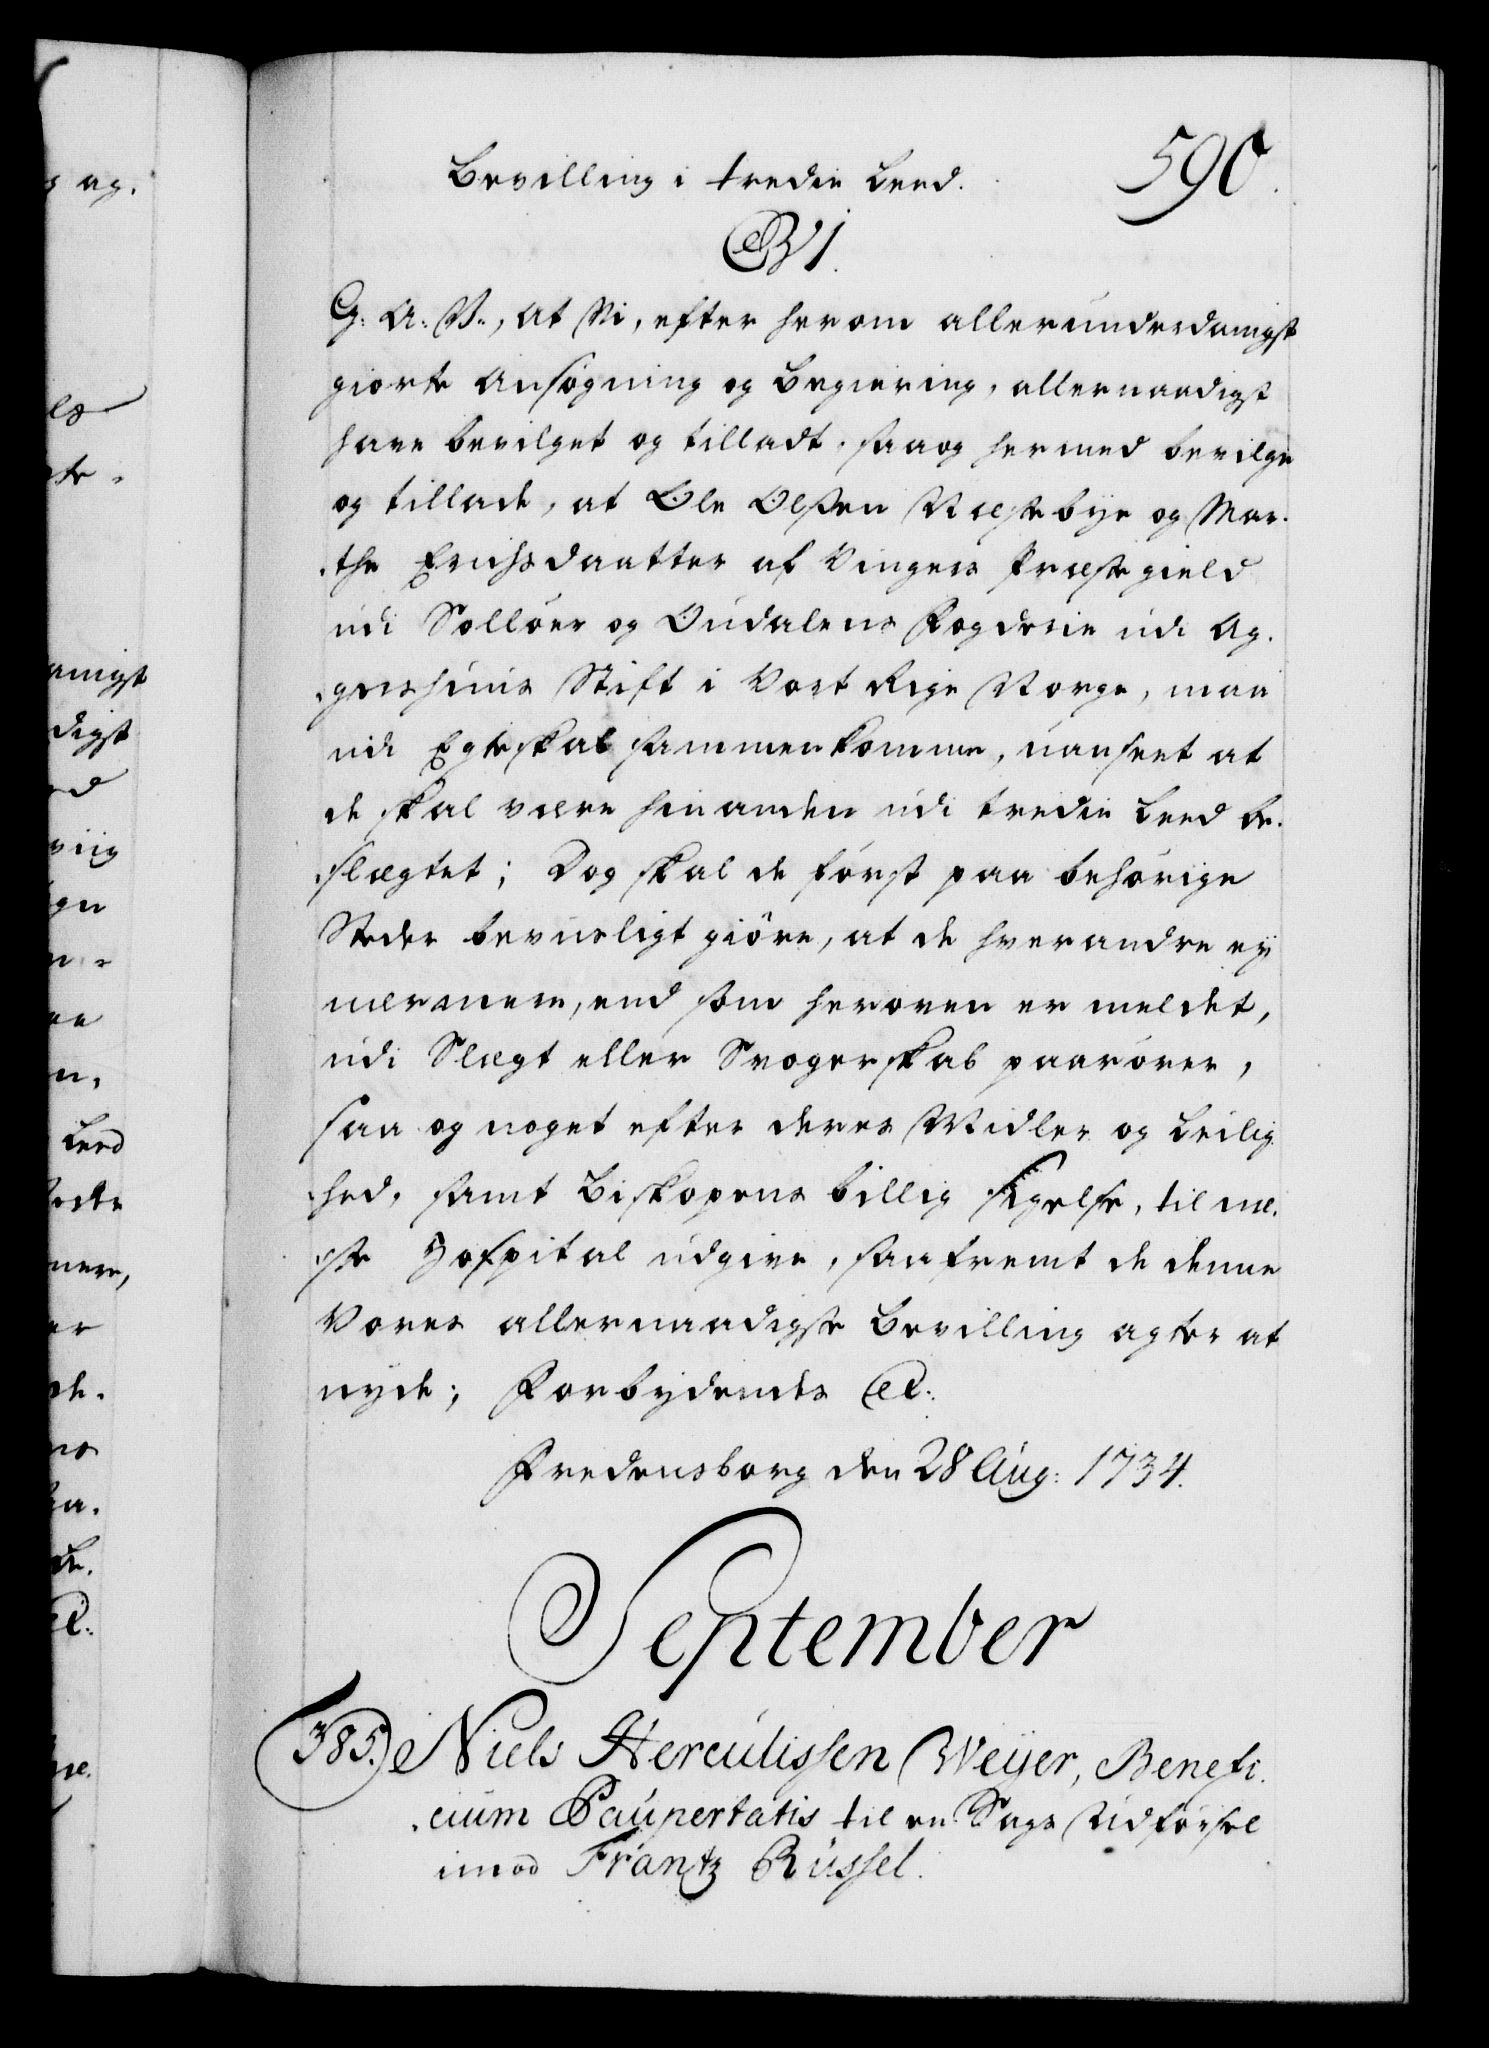 590.
Bevilling i tredie Leed.
C VI.
G: A: V:, At Vi, efter herom allerunderdanigst
giorte Ansøgning og Begiering, allernaadigst
have bevilget og tilladt, saa og hermed bevilge
og tillade, at Ole Olssen Næstebye og Mar-
-the Erichsdaatter af Vingers Præstegield
udi Solløer og Oudalens Fogderie udi Ag-
-gershuus Stift i Vort Rige Norge, maa
udi Egteskab sammenkomme, uanseet at
de skal være hinanden udi tredie Leed be-
-slægtet; Dog skal de først paa behørige
Steder beviisligt giøre, at de hverandre ey
nærmere, end som heroven er meldet,
udi Slægt eller Svogerskab paarører,
saa og noget efter deres Midler og Leilig-
-hed, samt Biskopens billig Sigelse, til næ-
-ste Hospital udgive, saafremt de denne
Vores allernaadigste Bevilling agter at
nyde; Forbydendes &c:
Fredensborg den 28 Aug: 1734.
September
385.) Niels Herculissen Weyer, Benefi-
-cium Paupertatis til en Sags Udførsel
imod Frantz Russel.